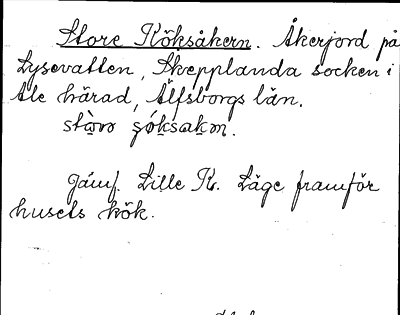 Store Köksåkern. Åkerjord på
Lysevatten, Skepplanda socken i
Ale härad, Älfsborgs län.
Jämf. Lille K. Läge framför
husets kök.